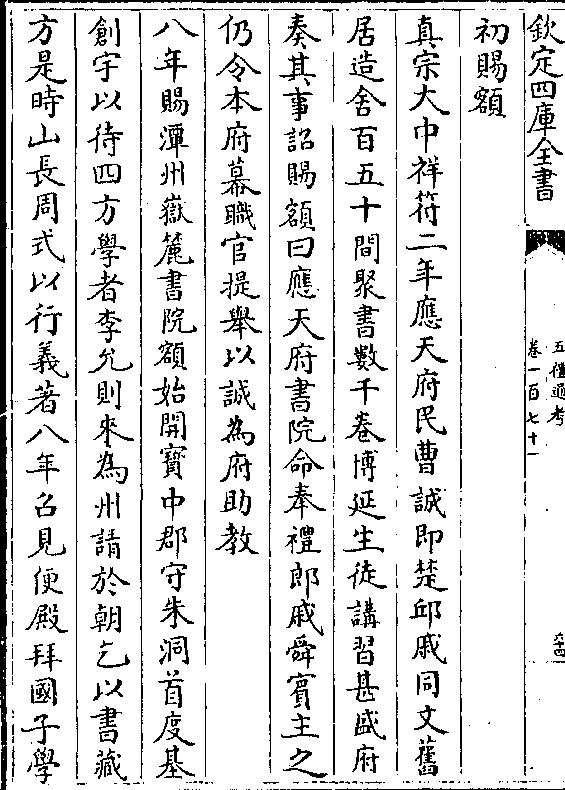 欽定四庫全書
五禮通考
卷一百七十一
六十四
初賜額
真宗大中祥符二年應天府民曹誠即楚邱戚同文舊
居造舍百五十間聚書數千卷博延生徒講習甚盛府
奏其事詔賜額曰應天府書院命奉禮郎戚舜賓主之
仍令本府幕職官提舉以誠為府助教
八年賜潭州嶽麓書院額始開寶中郡守朱洞首度基
創宇以待四方學者李允則來為州請於朝乞以書藏
方是時山長周式以行義著八年召見便殿拜國子學